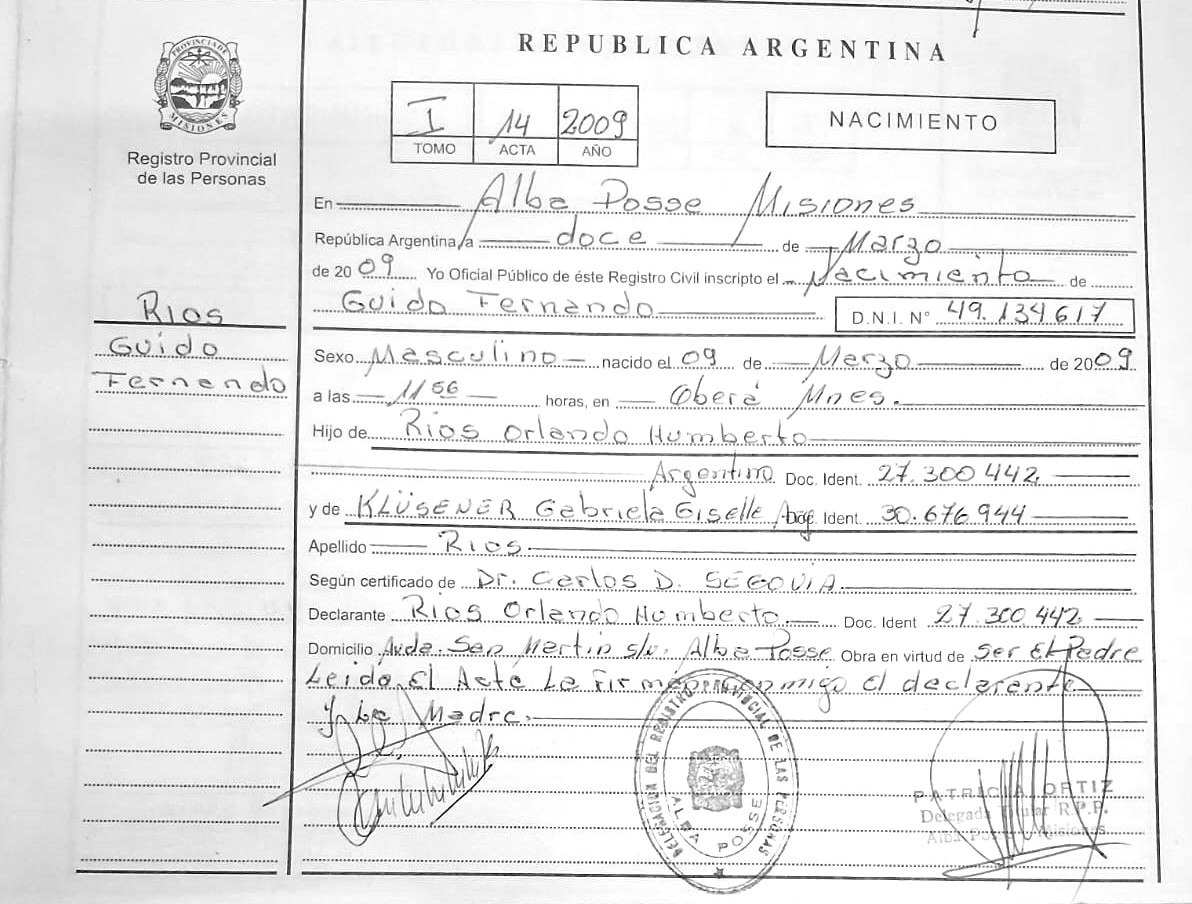 REPUBLICA ARGENTINA
PROVINCIA DE MISIONES
Registro Provincial
de las Personas
I 14 2009
TOMO ACTA AÑO
NACIMIENTO
En Alba Posse Misiones
República Argentina, a doce de Marzo
de 2009 Yo Oficial Público de éste Registro Civil inscripto el Nacimiento de
Guido Fernando D.N.I. N° 49.134.617
Rios
Guido
Fernando
Sexo Masculino nacido el 09 de Marzo de 2009
a las 11 56 horas, en Oberá Mnes.
Hijo de Rios Orlando Humberto
Argentino Doc. Ident. 27.300.442
y de KLÜSENER Gabriela Giselle Ident. 30.676.944
Apellido Rios
Según certificado de Dr. Carlos D. SEGOVIA
Declarante Rios Orlando Humberto Doc. Ident 27.300.442
Domicilio Avda. San Martin s/n. Alba Posse Obra en virtud de Ser El Padre
Leida El Acta La Firman conmigo el declarante
y La Madre.
DELEGACION DEL REGISTRO PROVINCIAL DE LAS PERSONAS
ALBA POSSE
PATRICIA ORTIZ
Delegada Titular R.P.P.
Alba Posse Misiones